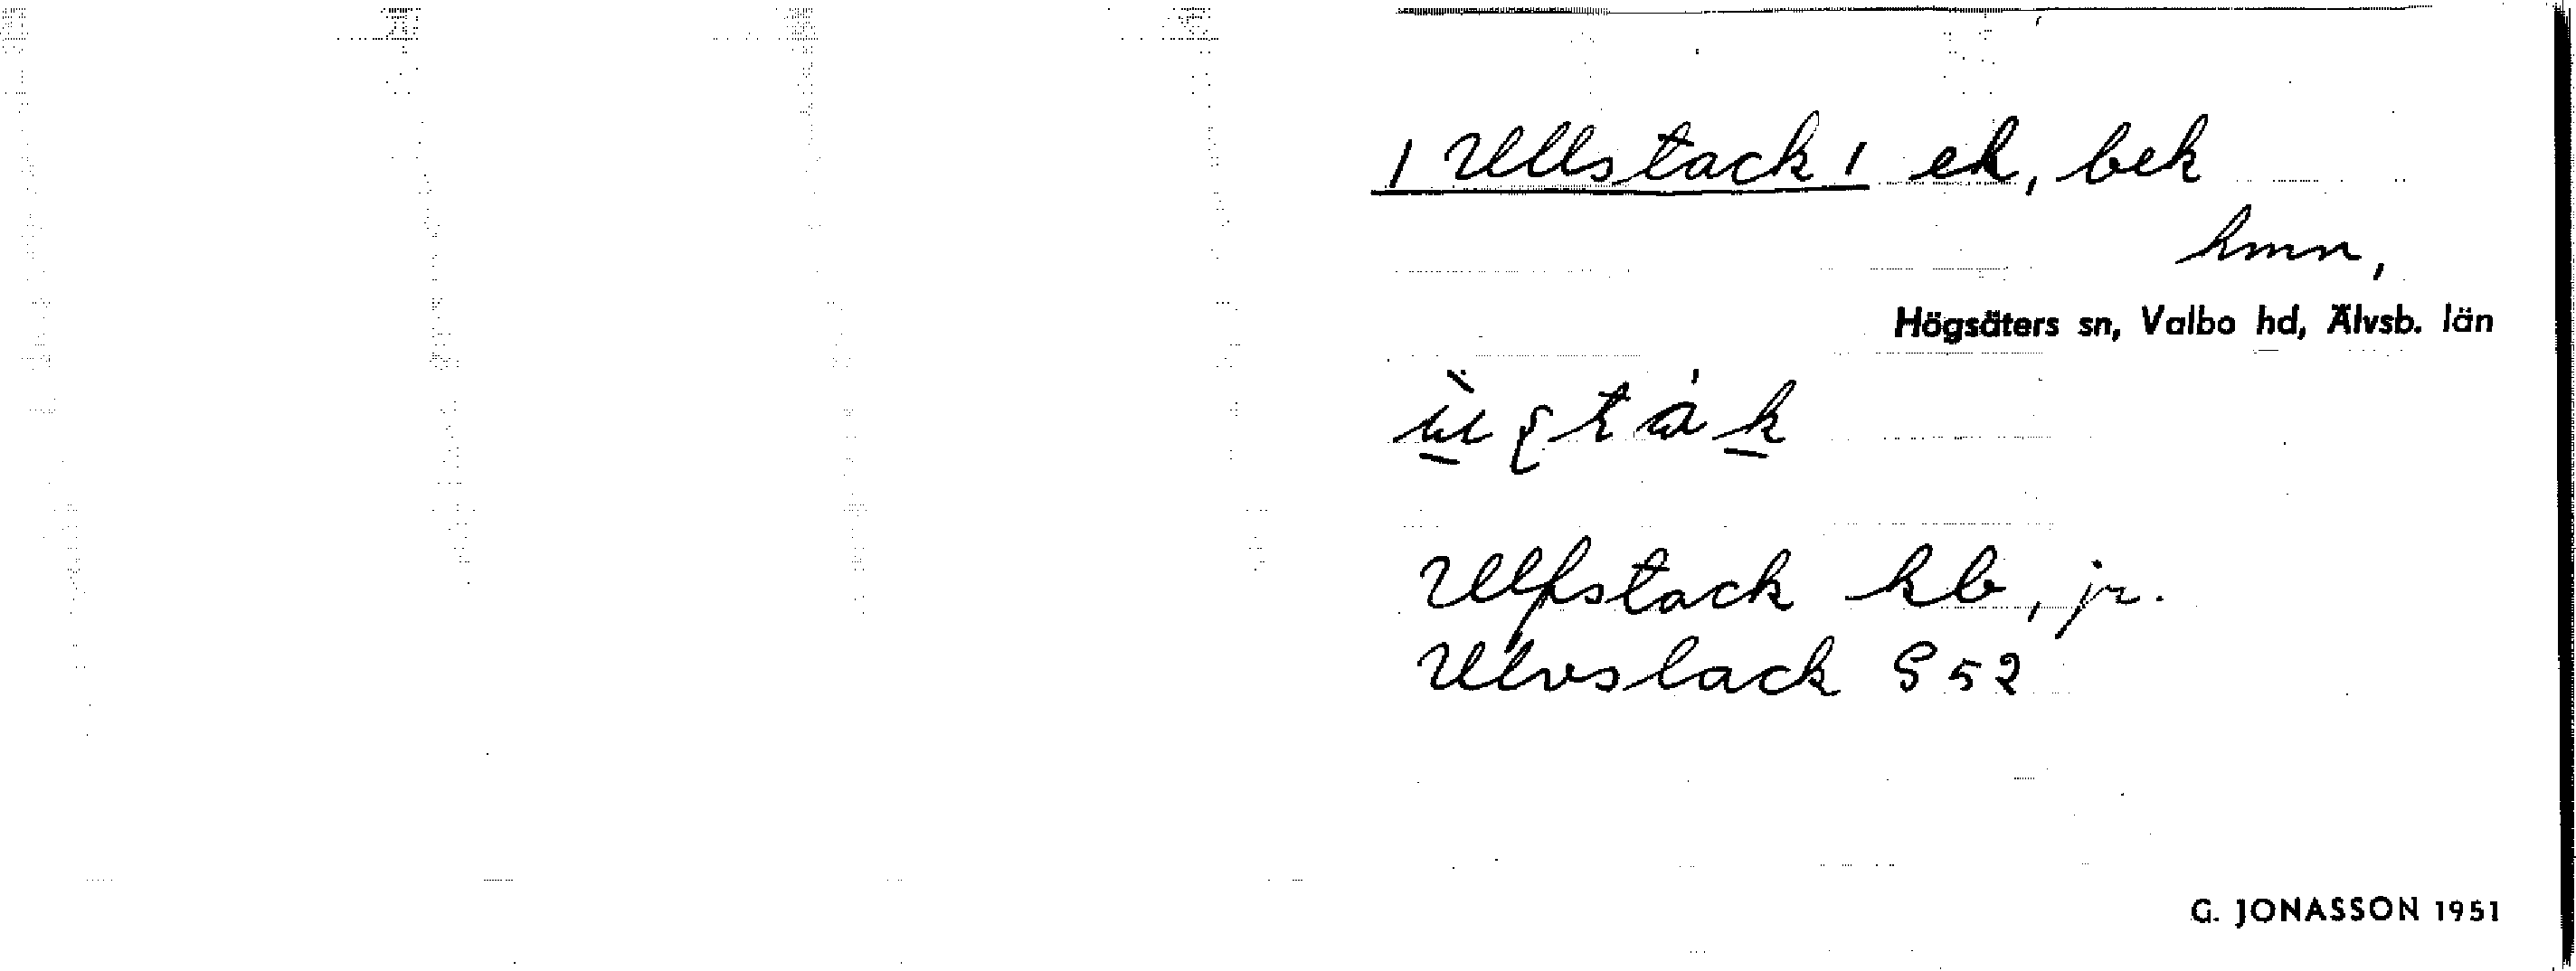 / Ullstack / ek, bek
hmn,
Högsäters sn, Valbo hd, Älvsb. län
Ulfstack kb, jr.
Ulvslack S 52
G. JONASSON 1951